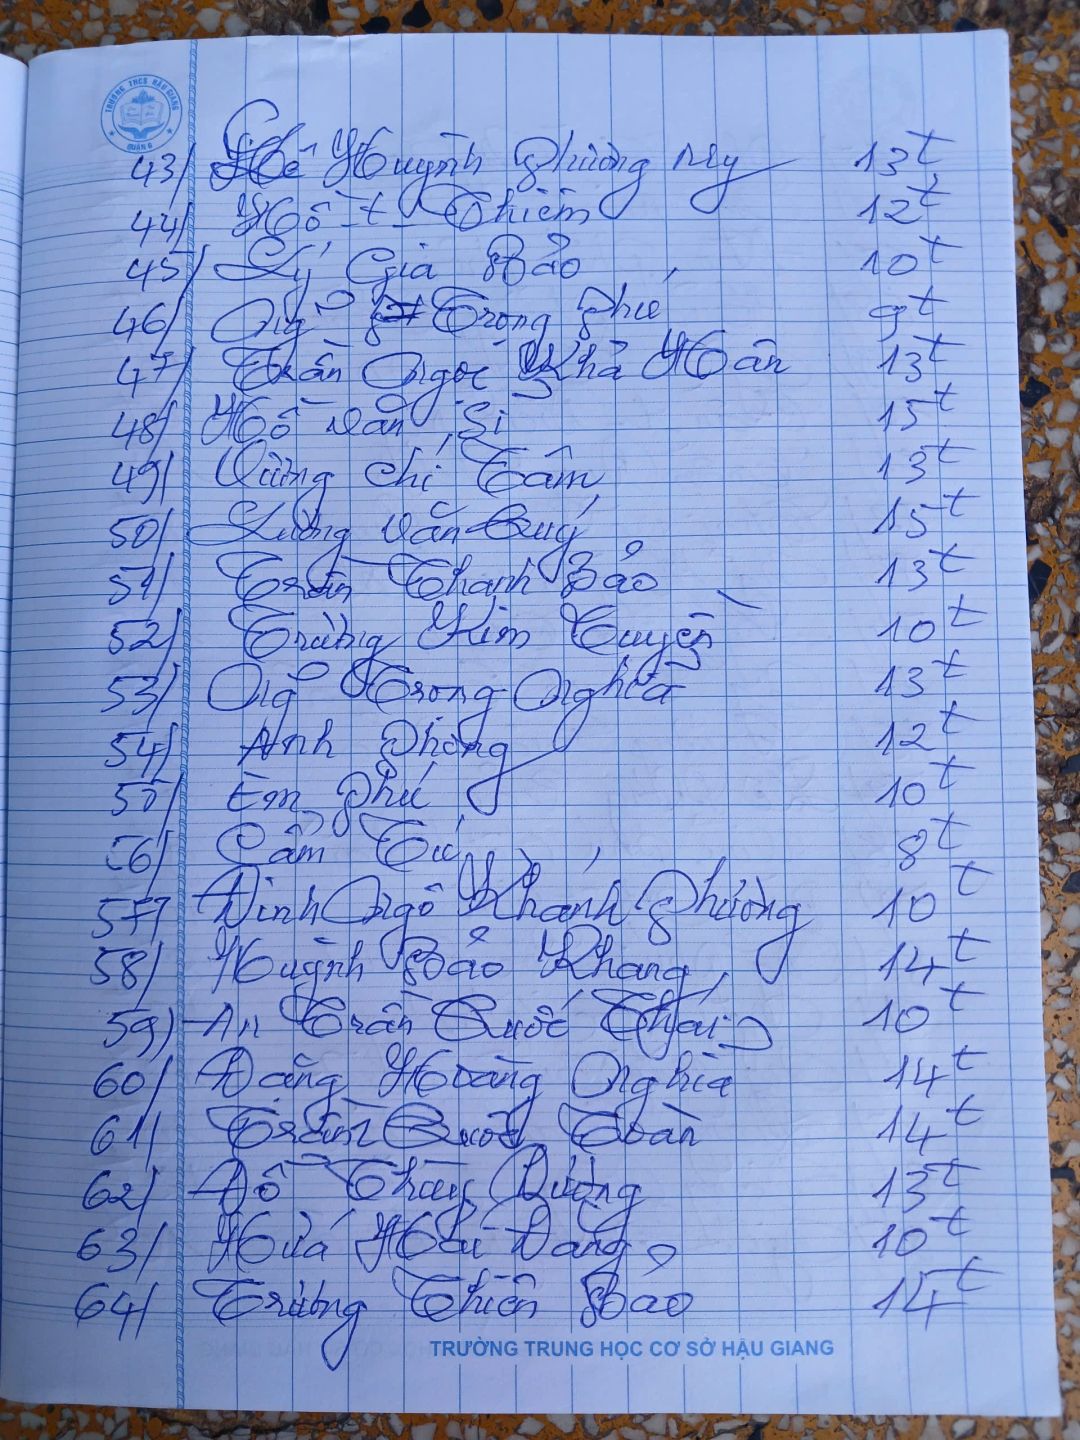 TRƯỜNG THCS HẬU GIANG
QUẬN 6
43/ Hồ Huỳnh Phương My 13t
44/ Hồ t Thiêm 12t
45/ Lý Gia Bảo 10t
46/ Ngô Trọng Phú 9t
47/ Trần Ngọc Khả Hân 13t
48/ Hồ Văn Sĩ 15t
49/ Vương Chí Tâm 13t
50/ Lương Văn Quý 15t
51/ Trần Thanh Bảo 13t
52/ Trương Kim Tuyền 10t
53/ Ngô Trọng Nghĩa 13t
54/ Anh Phong 12t
55/ Em Phú 10t
56/ Cẩm Tú 8t
57/ Đinh Ngô Khánh Phương 10t
58/ Huỳnh Bảo Khang 14t
59/ An Trần Quốc Thái 10t
60/ Đặng Hoàng Nghĩa 14t
61/ Trần Quốc Toàn 14t
62/ Đỗ Thùy Dương 13t
63/ Hứa Hải Đăng 10t
64/ Trương Thiên Bảo 14t
TRƯỜNG TRUNG HỌC CƠ SỞ HẬU GIANG